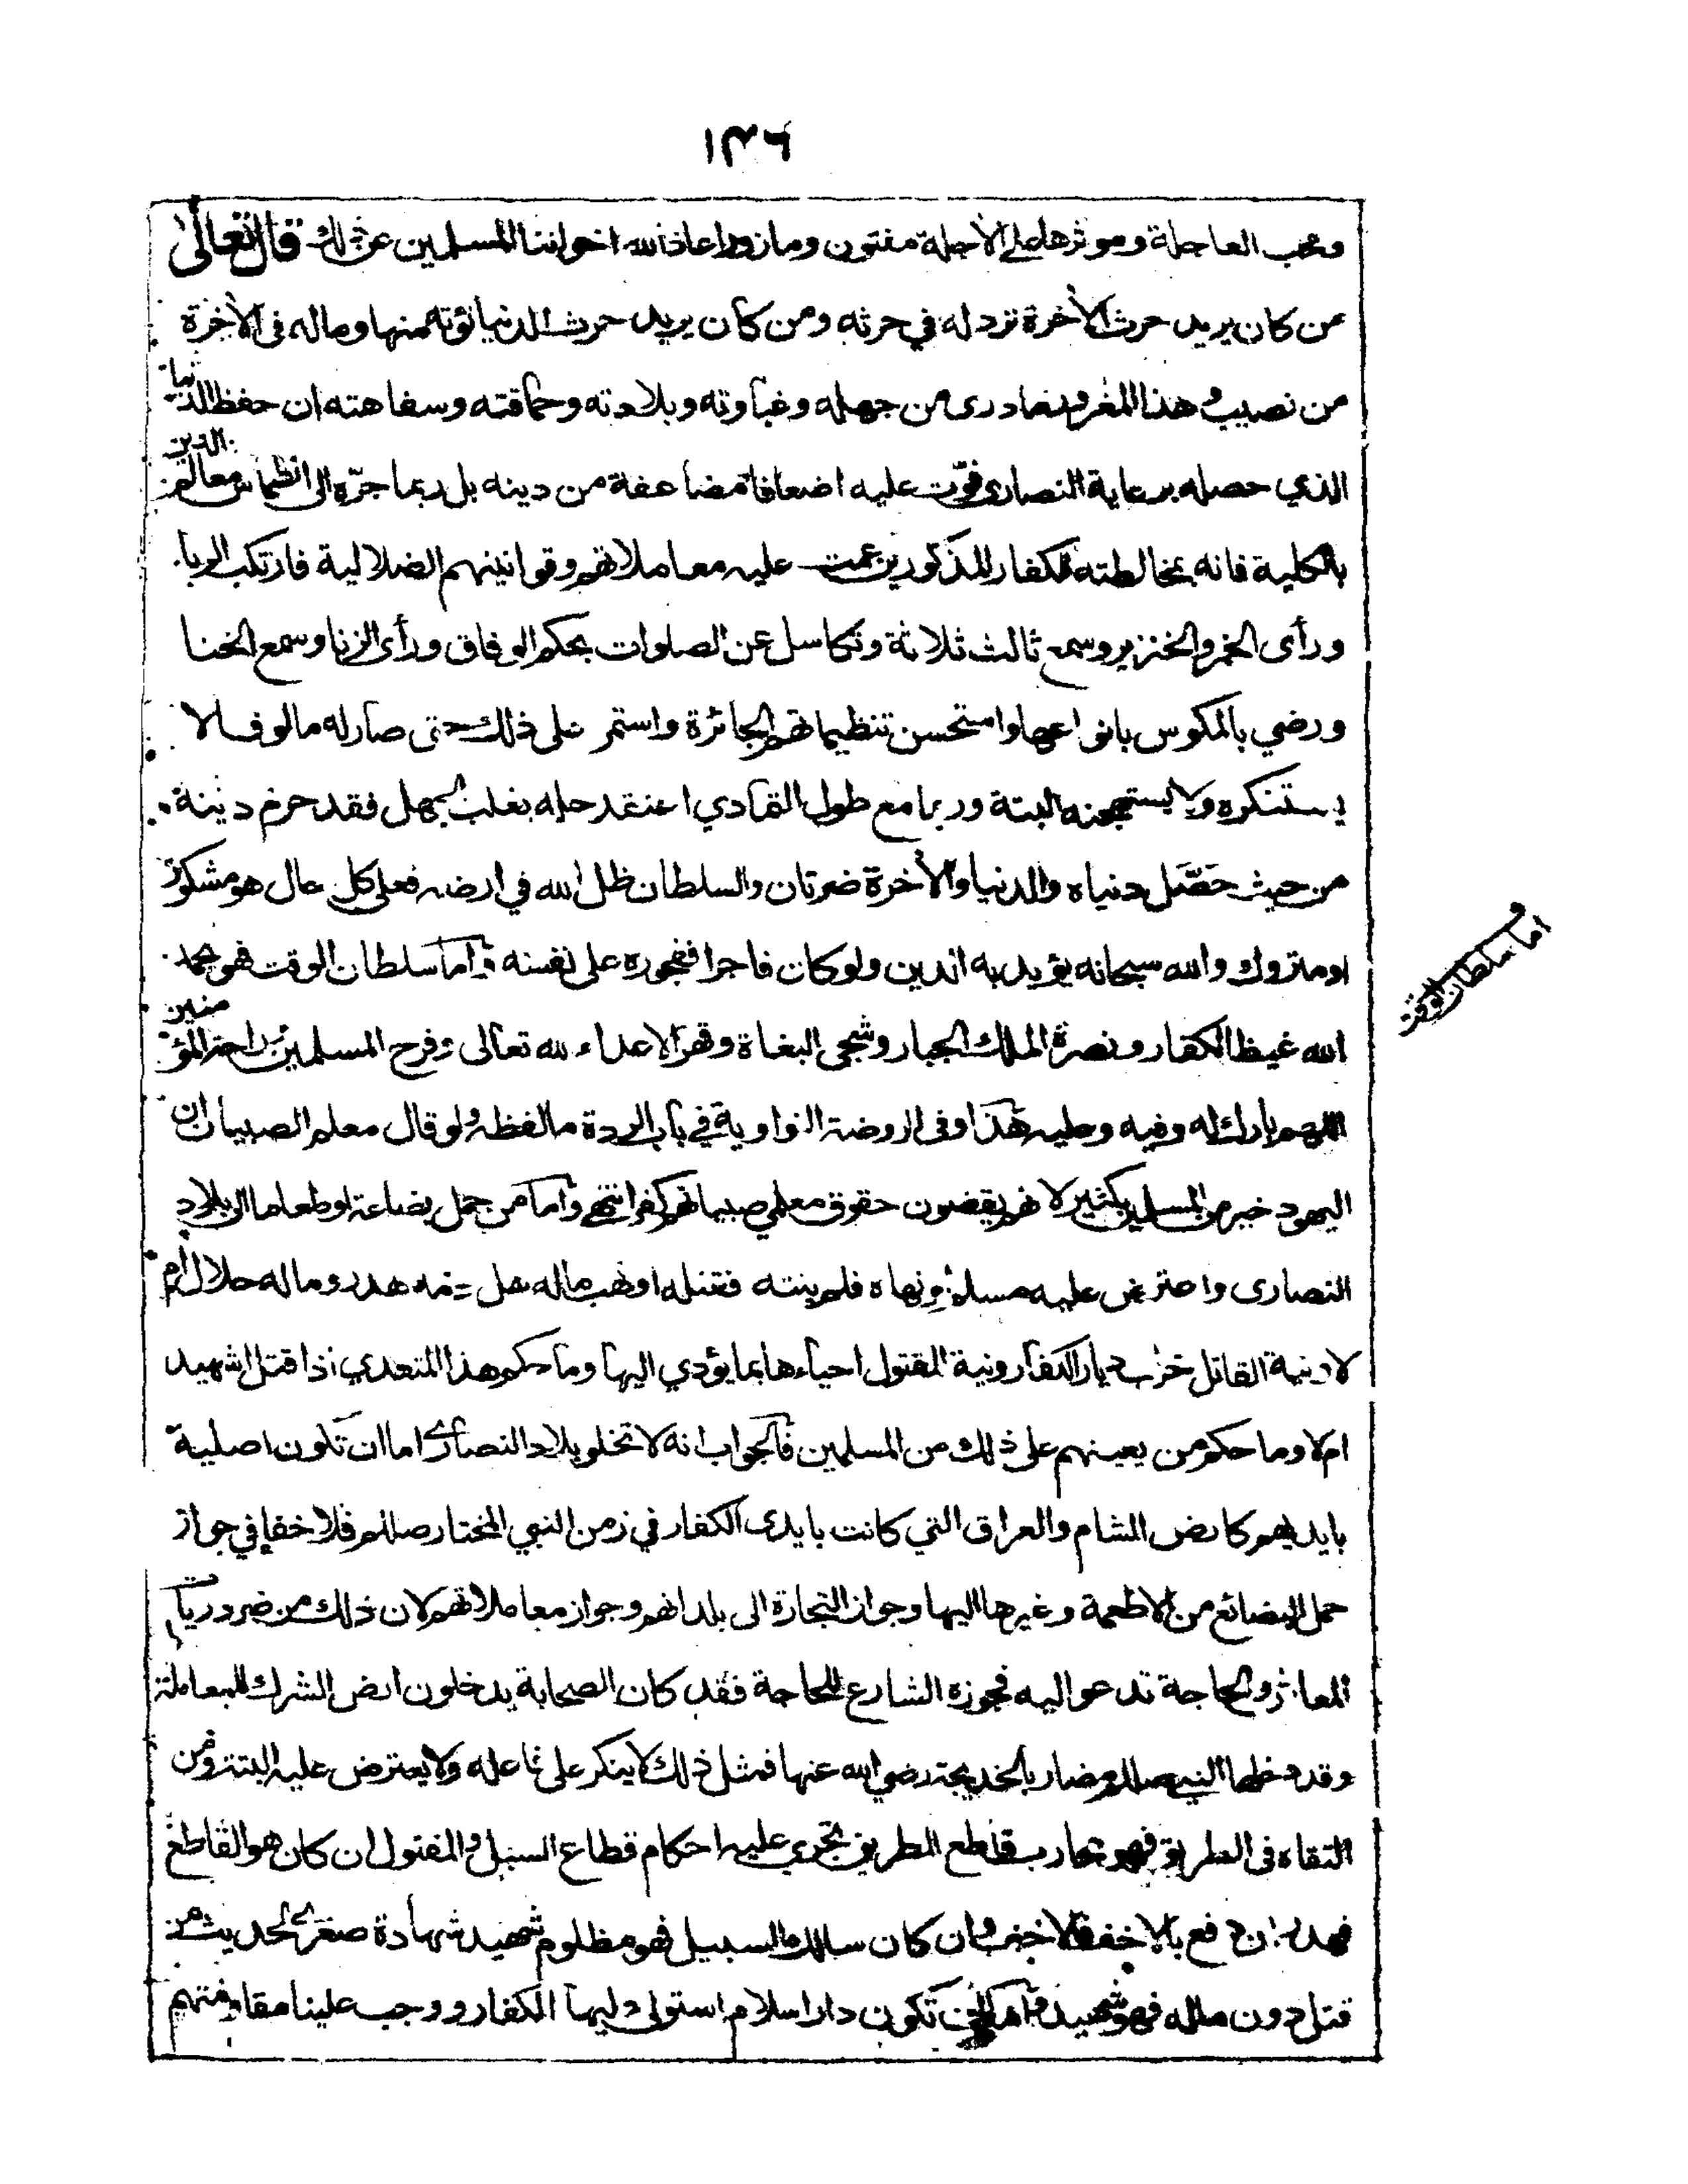 ١٣٦
ومحب العاجلة وموثرها على الآجلة مفتون ومازور اعاذ الله اخواننا المسلمين عن ذلك قال تعالى
من كان يريد حرث الآخرة نزد له في حرثه ومن كان يريد حرث الدنيا نؤته منها وماله في الآخرة
من نصيب وهذا المغرور ما درى من جهله وغباوته وبلادته وحماقته وسفاهته ان حفظ الدنيا
الذي حصله برعاية النصارى فوّت عليه اضعافا مضاعفة من دينه بل ربما جرّه الى انطماس معالم الدين
بالكلية فانه بمخالطته للكفار المذكورين عمت عليه معاملاتهم وقوانينهم الضلالية فارتكب الربا
ورأى الخمر والخنزير وسمع ثالث ثلاثة وتكاسل عن الصلوات بحكم الوفاق ورأى الزنا وسمع الخنا
ورضي بالمكوس بانواعها واستحسن تنظيماتهم الجائرة واستمر على ذلك حتى صار له مالوفا لا
يستنكره ولا يستهجنه البتة وربما مع طول التمادي اعتقد حله بغلب الجهل فقد حرم دينه
من حيث حَصَّل دنياه والدنيا والآخرة ضرتان والسلطان ظل الله في ارضه فعلى كل حال هو مشكور
او متروك والله سبحانه يؤيد به الدين ولو كان فاجرا ففجوره على نفسه واما سلطان الوقت فهو بحمد
واما سلطان الوقت
الله غيظ الكفار ونصرة الملك الجبار وشجى البغاة وقهر الاعداء لله تعالى وفرح المسلمين راحة المؤمنين
اللهم بارك له وفيه وعليه هذا وفي الروضة النواوية في باب الردة ما لفظه ولو قال معلم الصبيان ان
اليهود خير من المسلمين بكثير لانهم يقضون حقوق معلمي صبيانهم كفر انتهى واما من حمل بضاعة او طعاما الى بلاد
النصارى واعترض عليه مسلم ونهاه فلم ينته فقتله او نهب ماله هل دمه هدر وماله حلال ام
لا ونية القاتل خراب ديار الكفار ونية المقتول احياءها بما يؤدي اليها وما حكم هذا المتعدي اذا قتل اشهيد
ام لا وما حكم من يعينهم على ذلك من المسلمين فالجواب انه لا تخلو بلاد النصارى اما ان تكون اصلية
بايديهم كارض الشام والعراق التي كانت بايدى الكفار في زمن النبي المختار صللم فلا خفا في جواز
حمل البضائع من الاطعمة وغيرها اليها وجواز التجارة الى بلدانهم وجواز معاملاتهم لان ذلك من ضروريات
المعاش والحاجة تدعو اليه فجوزه الشارع للحاجة فقد كان الصحابة يدخلون ارض الشرك للمعاملة
وقد دخلها النبي صللم مضاربا لخديجة رضي الله عنها فمثل ذلك لا ينكر على فاعله ولا يعترض عليه البتة ومن
التقاه في الطريق فهو محارب قاطع الطريق تجري عليه احكام قطاع السبل والمقتول ان كان هو القاطع
فهدر ان دفع بالاخف فالاخف وان كان سالك السبيل فهو مظلوم شهيد شهادة صغرى لحديث من
قتل دون ماله فهو شهيد تكون دار اسلام استولى عليها الكفار ووجب علينا مقاومتهم